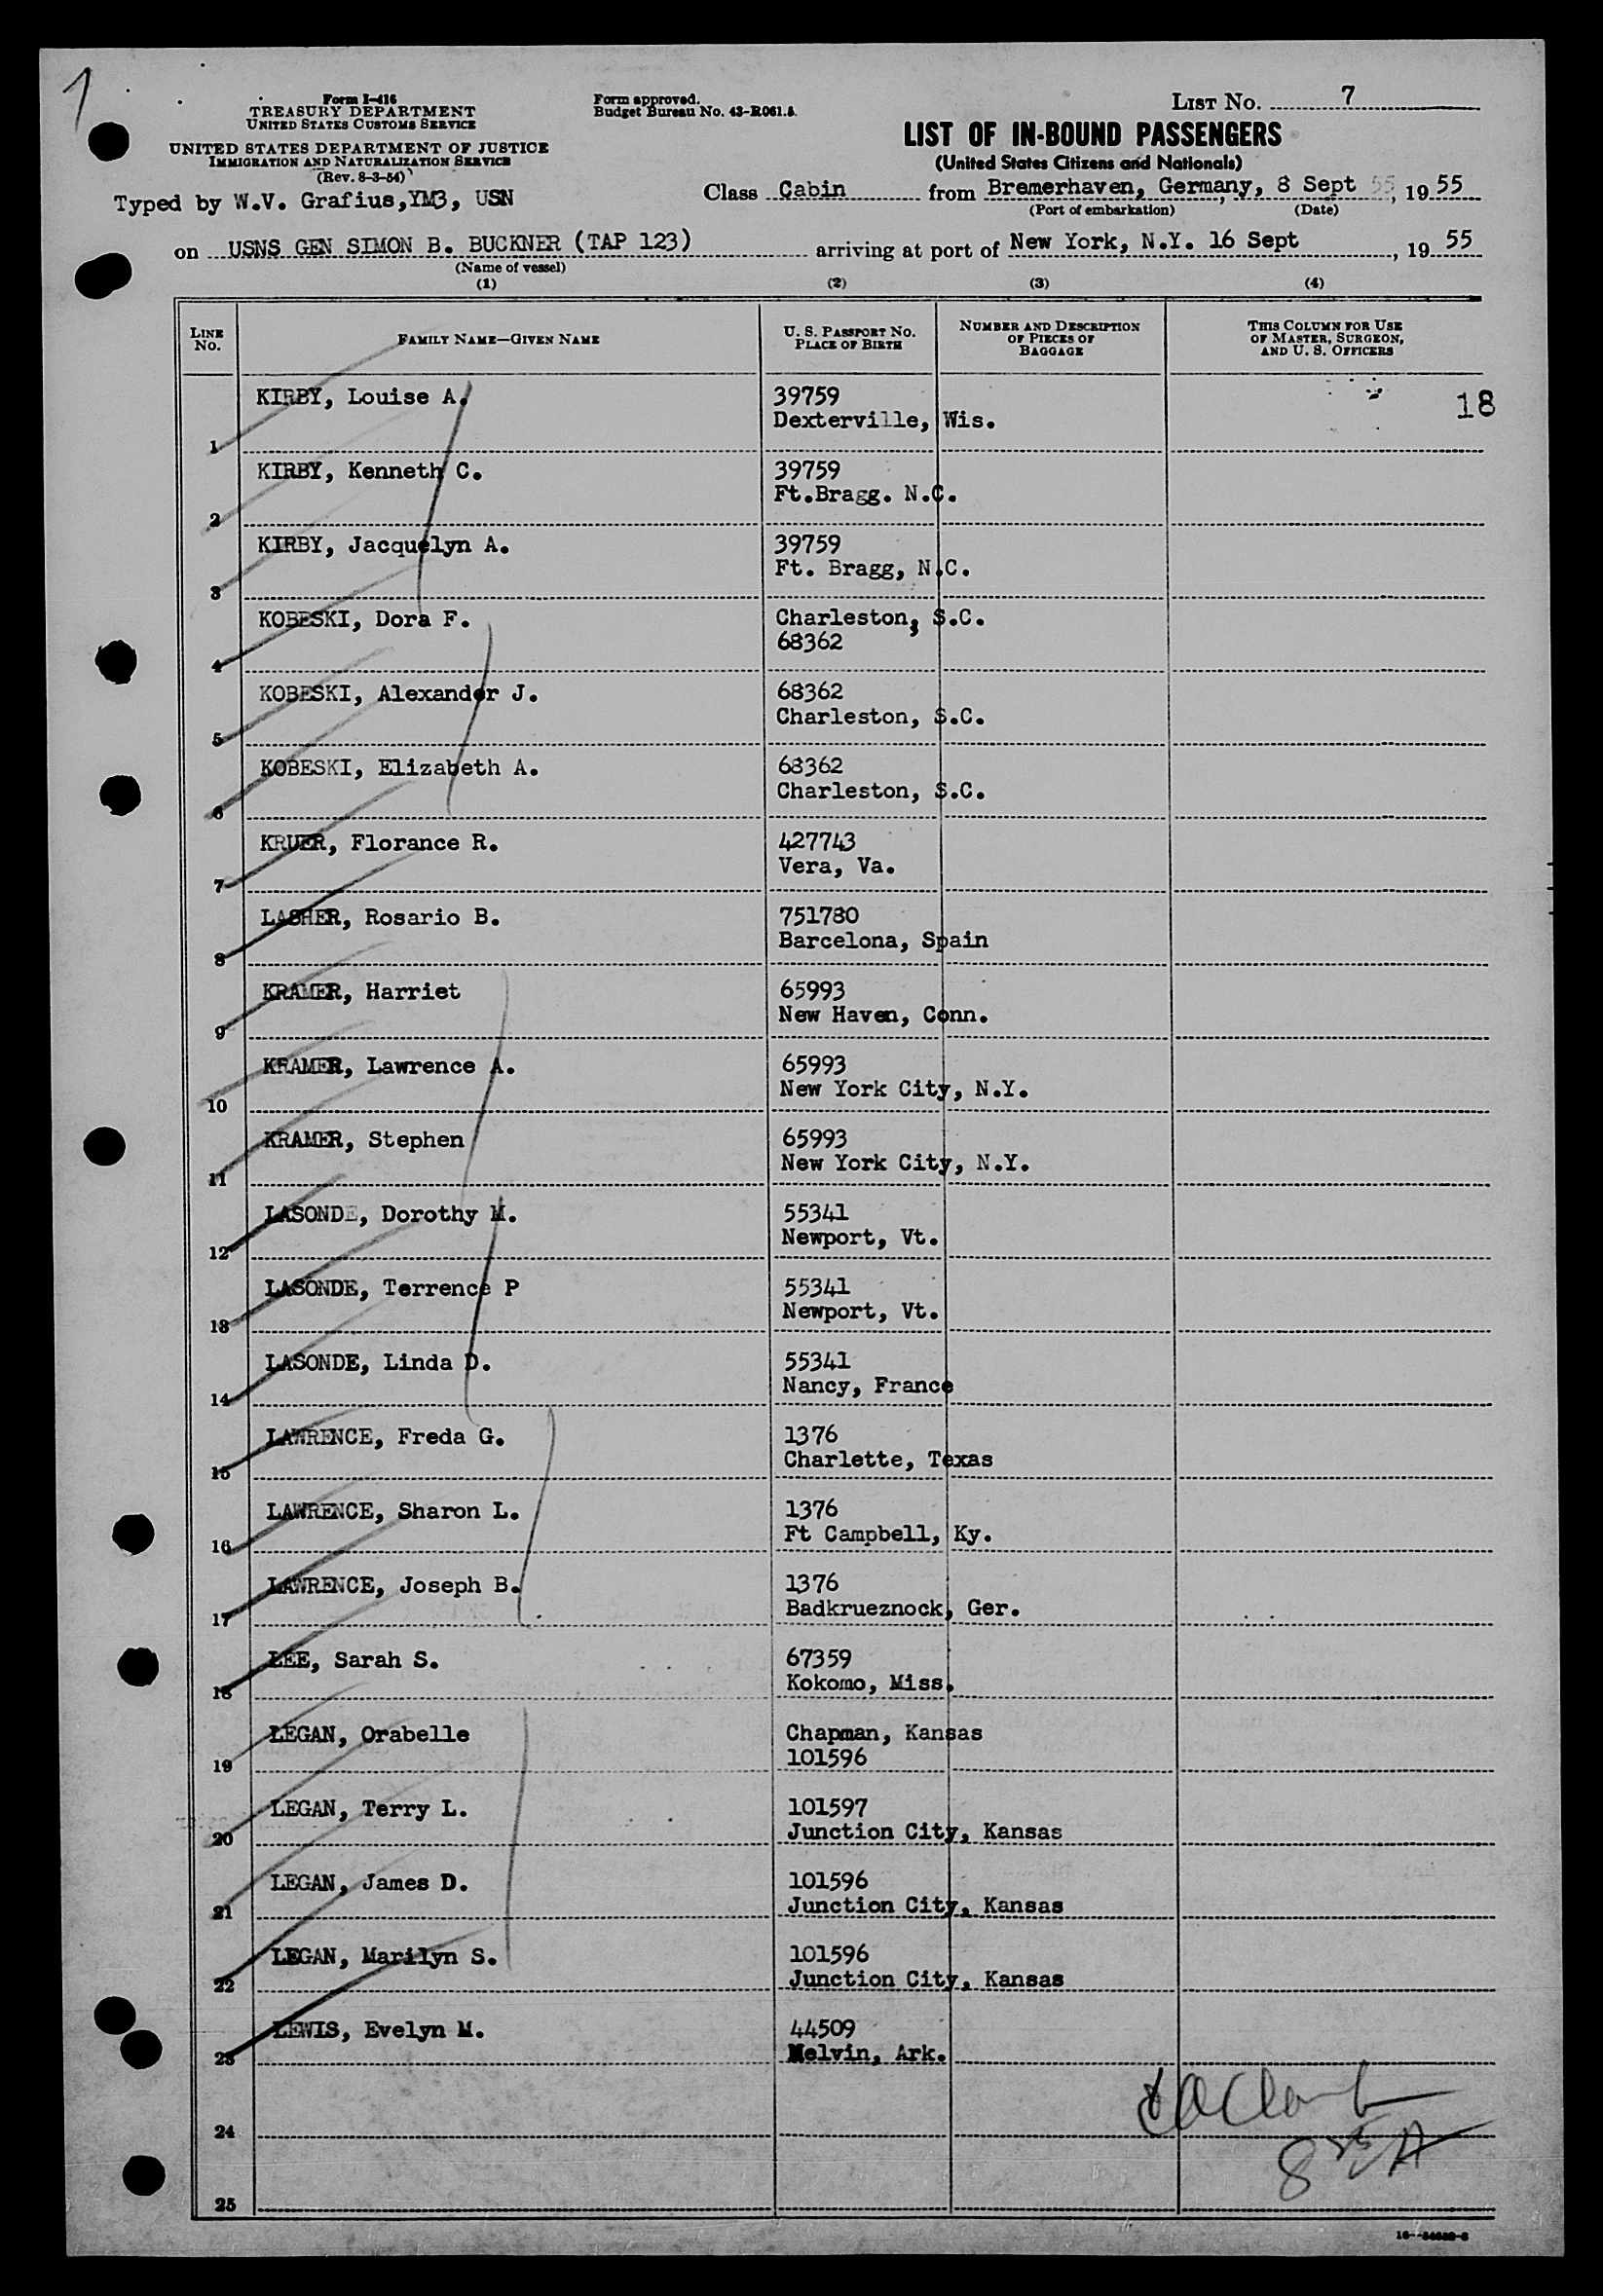 1
Form I-416
TREASURY DEPARTMENT
UNITED STATES CUSTOMS SERVICE
UNITED STATES DEPARTMENT OF JUSTICE
IMMIGRATION AND NATURALIZATION SERVICE
(Rev. 8-3-54)
Typed by W.V. Grafius,YM3, USN
Form approved.
Budget Bureau No. 43-R061.5.
LIST NO. 7
LIST OF IN-BOUND PASSENGERS
(United States Citizens and Nationals)
Class Cabin from Bremerhaven, Germany, 8 Sept 55, 1955
(Port of embarkation) (Date)
on USNS GEN SIMON B. BUCKNER (TAP 123) arriving at port of New York, N.Y. 16 Sept, 1955
(Name of vessel)
(1) (2) (3) (4)
LINE NO. FAMILY NAME—GIVEN NAME U. S. PASSPORT NO. PLACE OF BIRTH NUMBER AND DESCRIPTION OF PIECES OF BAGGAGE THIS COLUMN FOR USE OF MASTER, SURGEON, AND U. S. OFFICERS
KIRBY, Louise A. 39759 18
1 Dexterville, Wis.
KIRBY, Kenneth C. 39759
2 Ft.Bragg. N.C.
KIRBY, Jacquelyn A. 39759
3 Ft. Bragg, N.C.
KOBESKI, Dora F. Charleston, S.C.
4 68362
KOBESKI, Alexander J. 68362
5 Charleston, S.C.
KOBESKI, Elizabeth A. 68362
6 Charleston, S.C.
KRUER, Florance R. 427743
7 Vera, Va.
LASHER, Rosario B. 751780
8 Barcelona, Spain
KRAMER, Harriet 65993
9 New Haven, Conn.
KRAMER, Lawrence A. 65993
10 New York City, N.Y.
KRAMER, Stephen 65993
11 New York City, N.Y.
LASONDE, Dorothy M. 55341
12 Newport, Vt.
LASONDE, Terrence P 55341
13 Newport, Vt.
LASONDE, Linda D. 55341
14 Nancy, France
LAWRENCE, Freda G. 1376
15 Charlette, Texas
LAWRENCE, Sharon L. 1376
16 Ft Campbell, Ky.
LAWRENCE, Joseph B. 1376
17 Badkrueznock, Ger.
LEE, Sarah S. 67359
18 Kokomo, Miss.
LEGAN, Orabelle Chapman, Kansas
19 101596
LEGAN, Terry L. 101597
20 Junction City, Kansas
LEGAN, James D. 101596
21 Junction City, Kansas
LEGAN, Marilyn S. 101596
22 Junction City, Kansas
LEWIS, Evelyn M. 44509
23 Melvin, Ark.
24
25